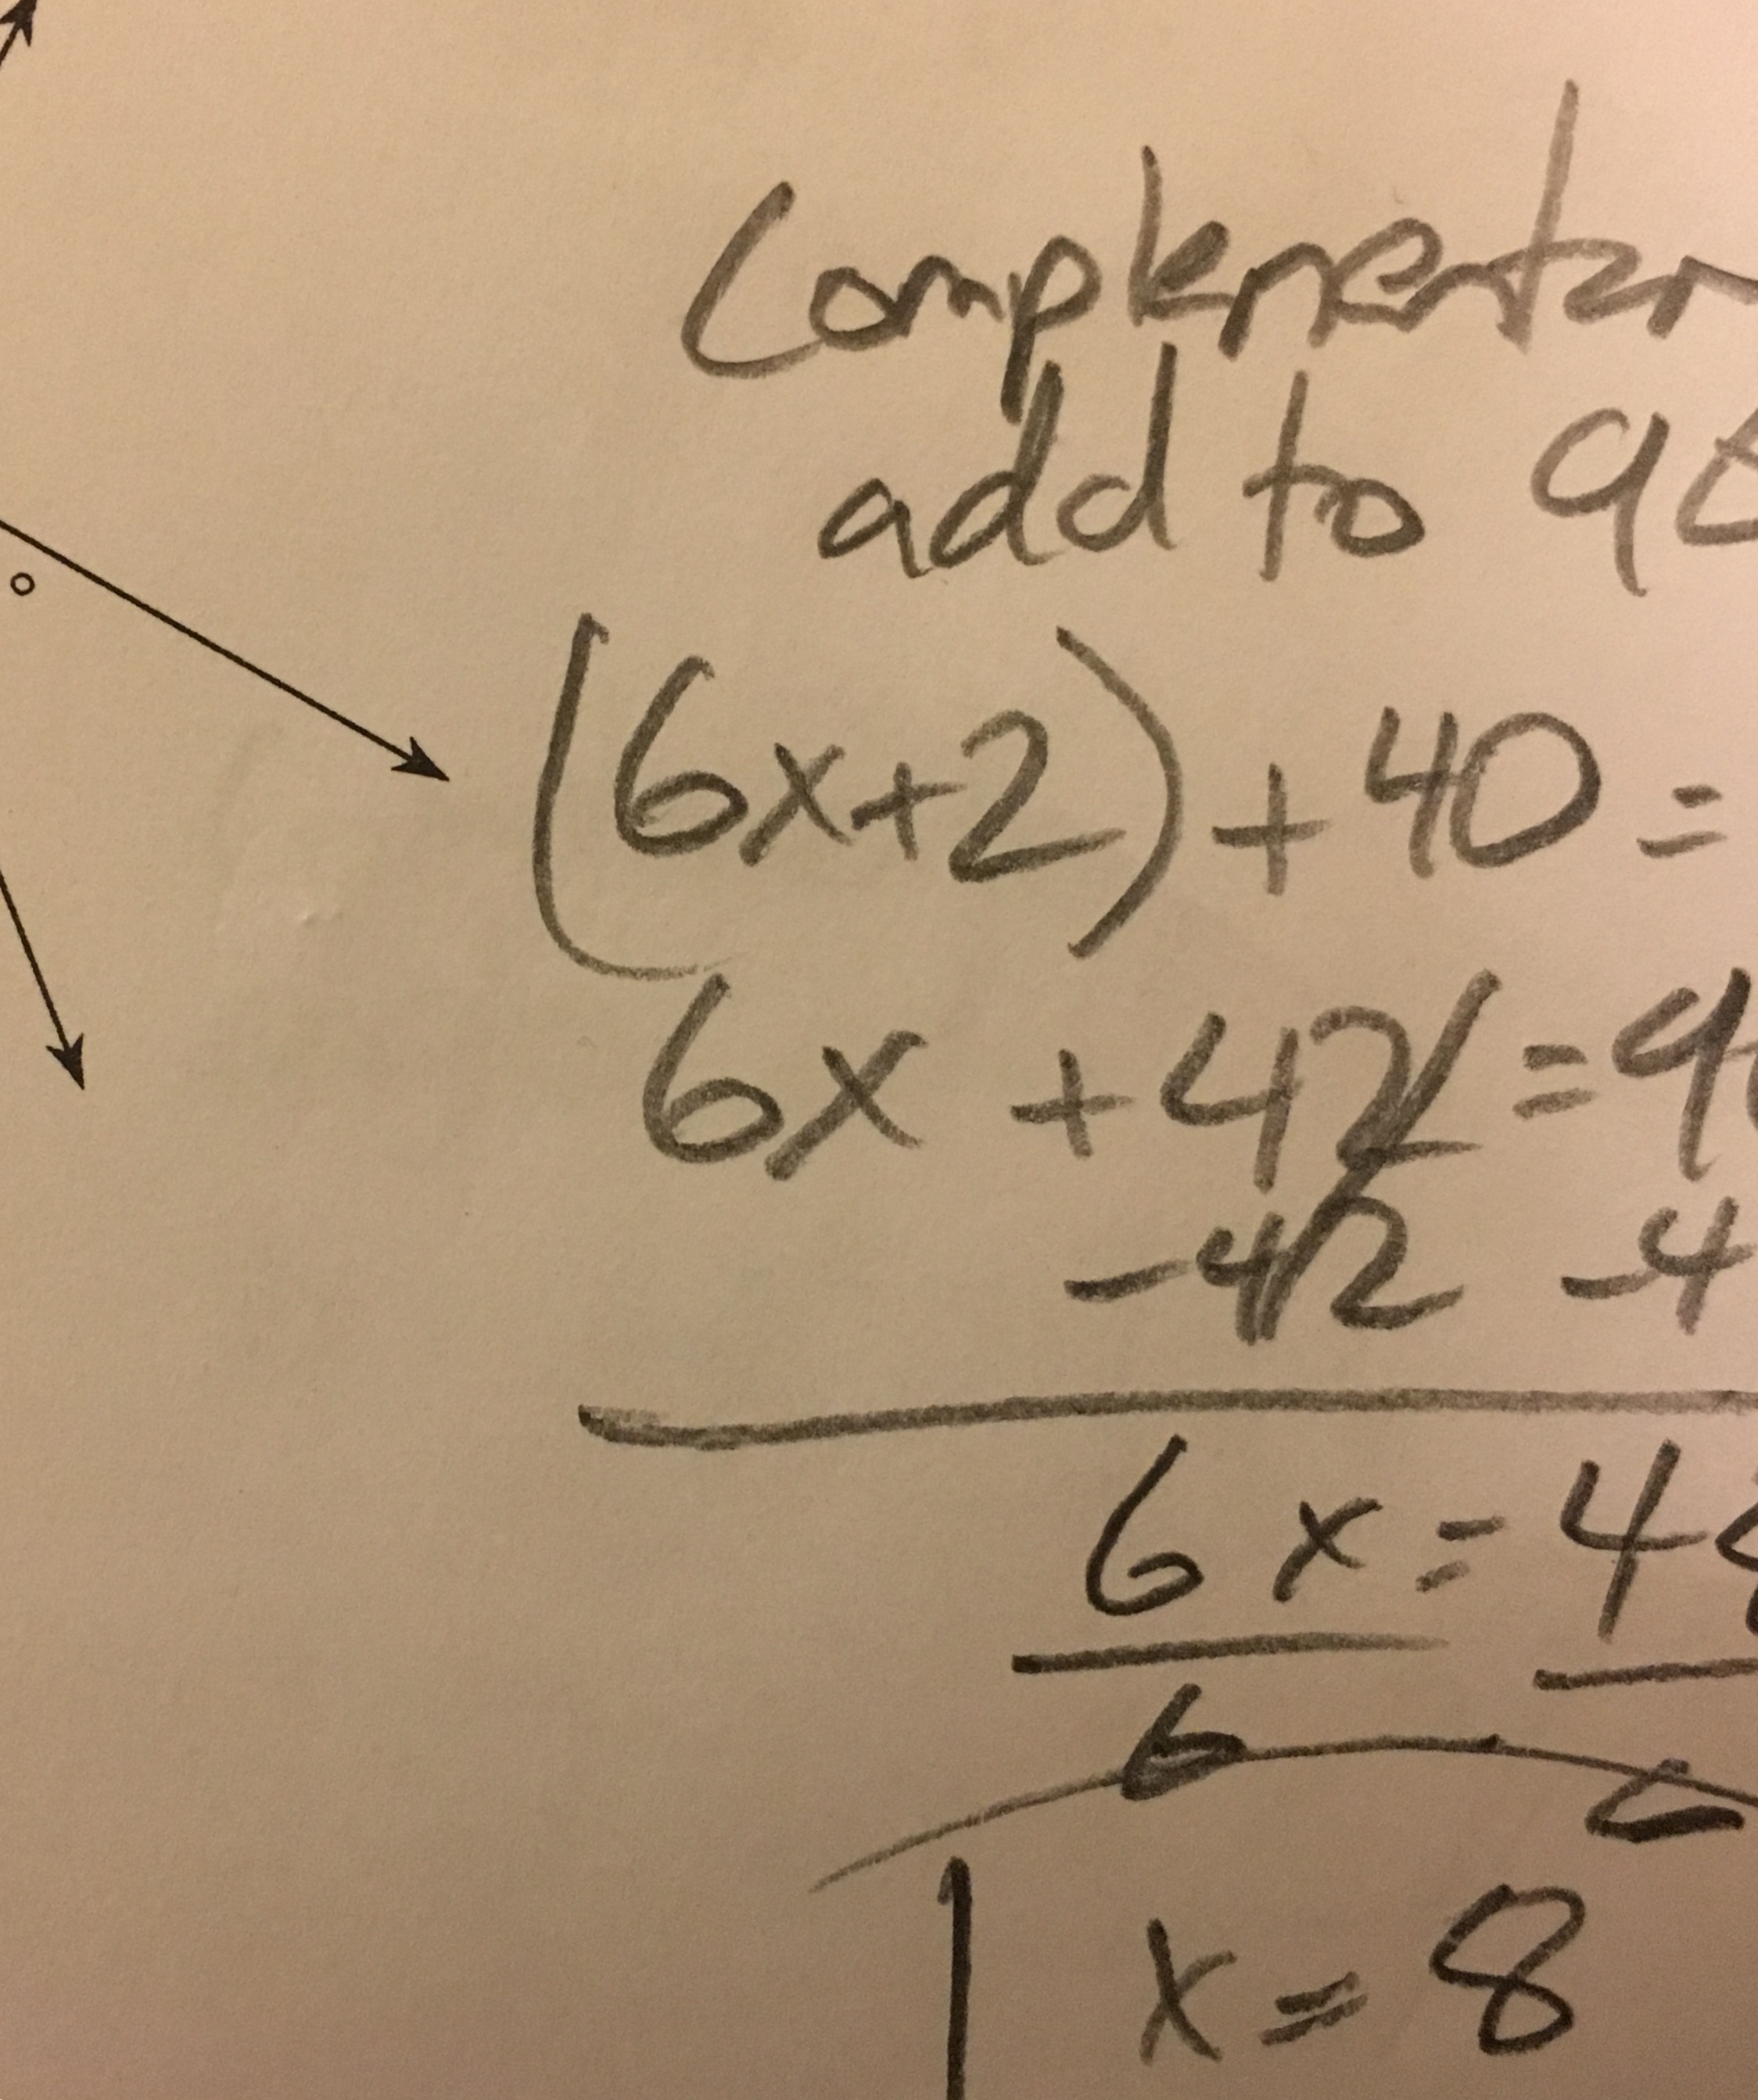 Complementar
add to 90
(6x+2) + 40 =
6x + 42 = 90
-42 -4
6x = 48
6 6
x = 8